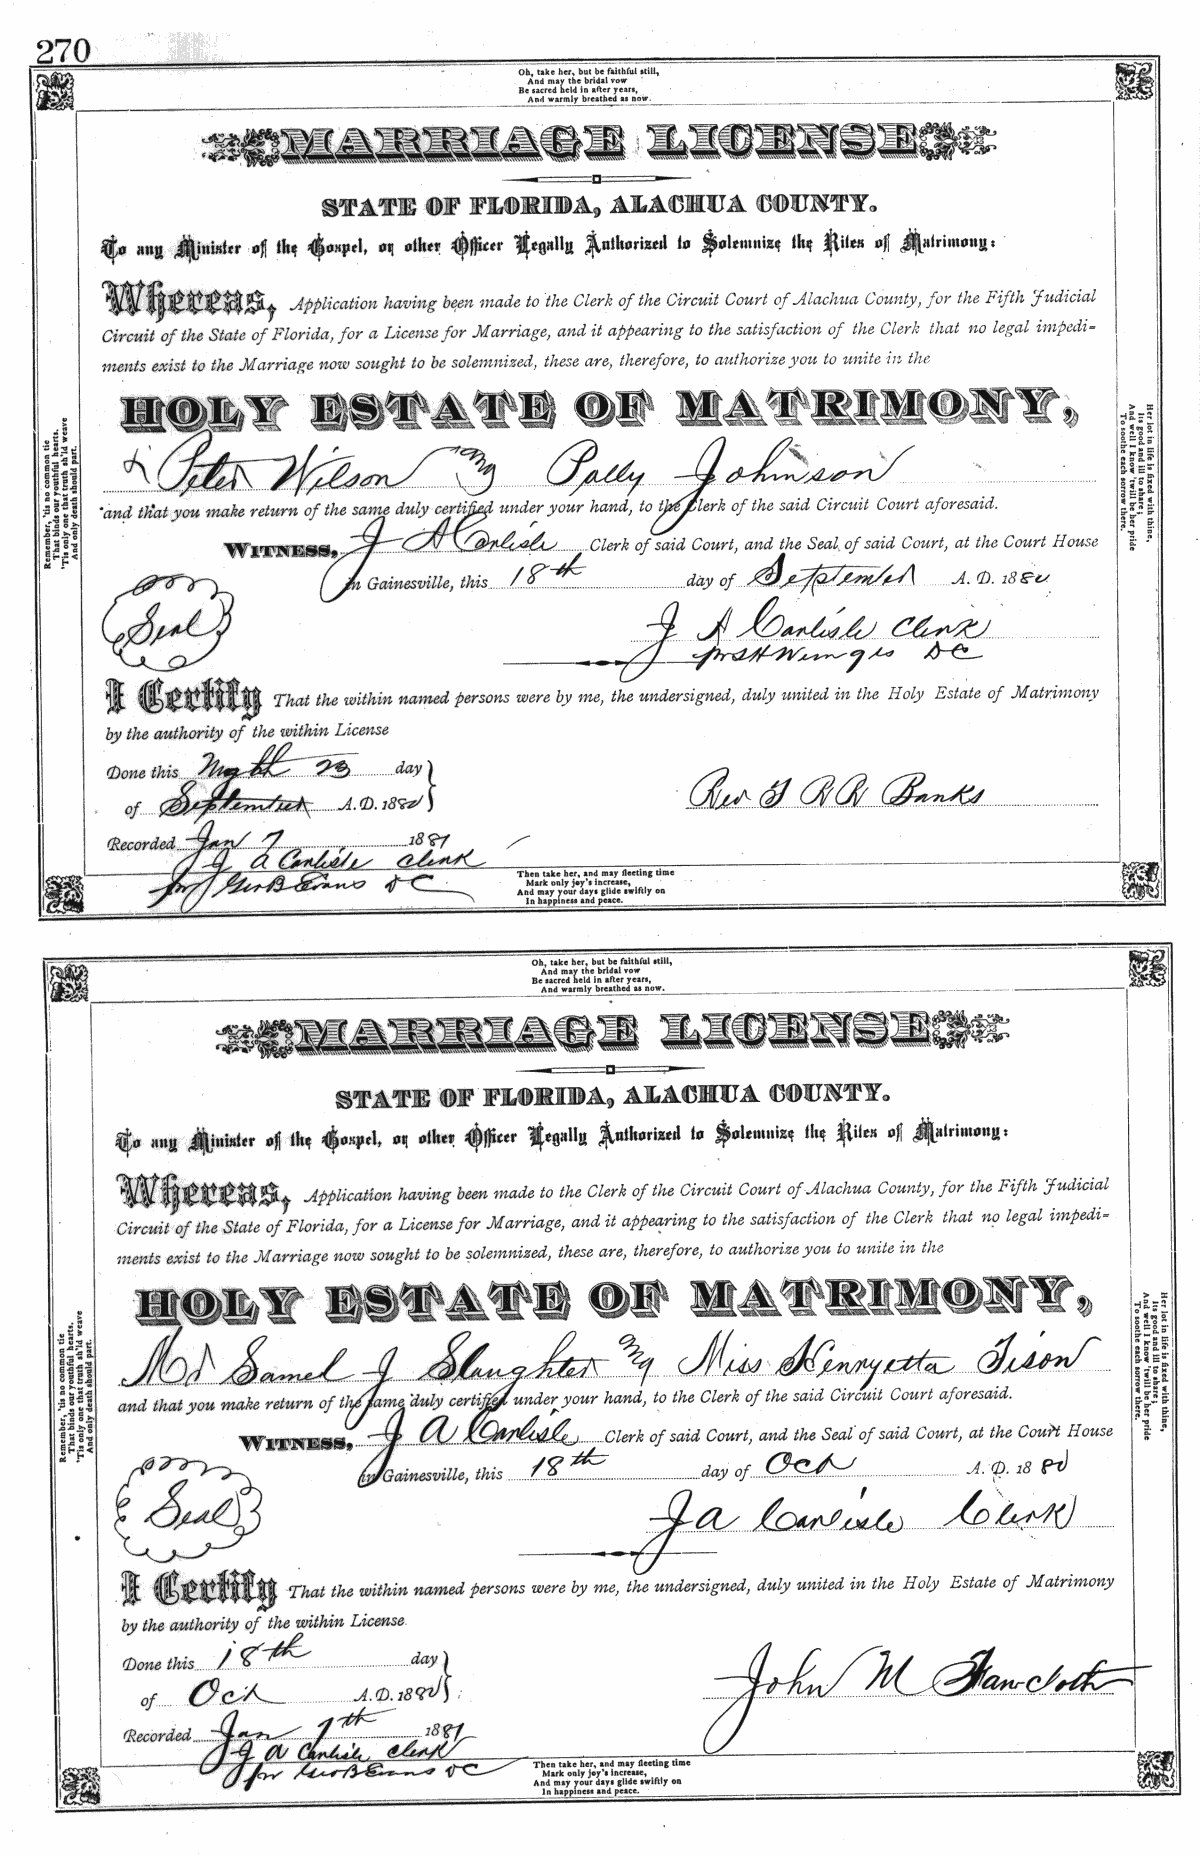 270
Oh, take her, but be faithful still,
And may the bridal vow
Be sacred held in after years,
And warmly breathed as now.
MARRIAGE LICENSE
STATE OF FLORIDA, ALACHUA COUNTY.
To any Minister of the Gospel, or other Officer Legally Authorized to Solemnize the Rites of Matrimony:
Whereas, Application having been made to the Clerk of the Circuit Court of Alachua County, for the Fifth Judicial
Circuit of the State of Florida, for a License for Marriage, and it appearing to the satisfaction of the Clerk that no legal impedi-
ments exist to the Marriage now sought to be solemnized, these are, therefore, to authorize you to unite in the
HOLY ESTATE OF MATRIMONY,
Peter Wilson and Polly Johnson
and that you make return of the same duly certified under your hand, to the Clerk of the said Circuit Court aforesaid.
WITNESS, J A Carlisle Clerk of said Court, and the Seal of said Court, at the Court House
in Gainesville, this 18th day of September A. D. 1880
Seal
J A Carlisle Clerk
DC
I Certify That the within named persons were by me, the undersigned, duly united in the Holy Estate of Matrimony
by the authority of the within License
Done this 23 day
of September A.D. 1880
Rev Banks
Recorded Jan 7 1881
J A Carlisle Clerk
pr Geo B Evans DC
Then take her, and may fleeting time
Mark only joy's increase,
And may your days glide swiftly on
In happiness and peace.
Remember, 'tis no common tie
That binds our youthful hearts,
'Tis only one that truth sh'ld weave
And only death should part.
Her lot in life is fixed with thine,
Its good and ill to share;
And well I know 'twill be her pride
To soothe each sorrow there.
Oh, take her, but be faithful still,
And may the bridal vow
Be sacred held in after years,
And warmly breathed as now.
MARRIAGE LICENSE
STATE OF FLORIDA, ALACHUA COUNTY.
To any Minister of the Gospel, or other Officer Legally Authorized to Solemnize the Rites of Matrimony:
Whereas, Application having been made to the Clerk of the Circuit Court of Alachua County, for the Fifth Judicial
Circuit of the State of Florida, for a License for Marriage, and it appearing to the satisfaction of the Clerk that no legal impedi-
ments exist to the Marriage now sought to be solemnized, these are, therefore, to authorize you to unite in the
HOLY ESTATE OF MATRIMONY,
Mr Samel J Slaughter and Miss Hennyetta Tison
and that you make return of the same duly certified under your hand, to the Clerk of the said Circuit Court aforesaid.
WITNESS, J A Carlisle Clerk of said Court, and the Seal of said Court, at the Court House
in Gainesville, this 18th day of Oct A. D. 1880
Seal
J A Carlisle Clerk
I Certify That the within named persons were by me, the undersigned, duly united in the Holy Estate of Matrimony
by the authority of the within License
Done this 18th day
of Oct A.D. 1880
John M
Recorded Jan 7th 1881
J A Carlisle Clerk
pr Geo B Evans DC
Then take her, and may fleeting time
Mark only joy's increase,
And may your days glide swiftly on
In happiness and peace.
Remember, 'tis no common tie
That binds our youthful hearts,
'Tis only one that truth sh'ld weave
And only death should part.
Her lot in life is fixed with thine,
Its good and ill to share;
And well I know 'twill be her pride
To soothe each sorrow there.